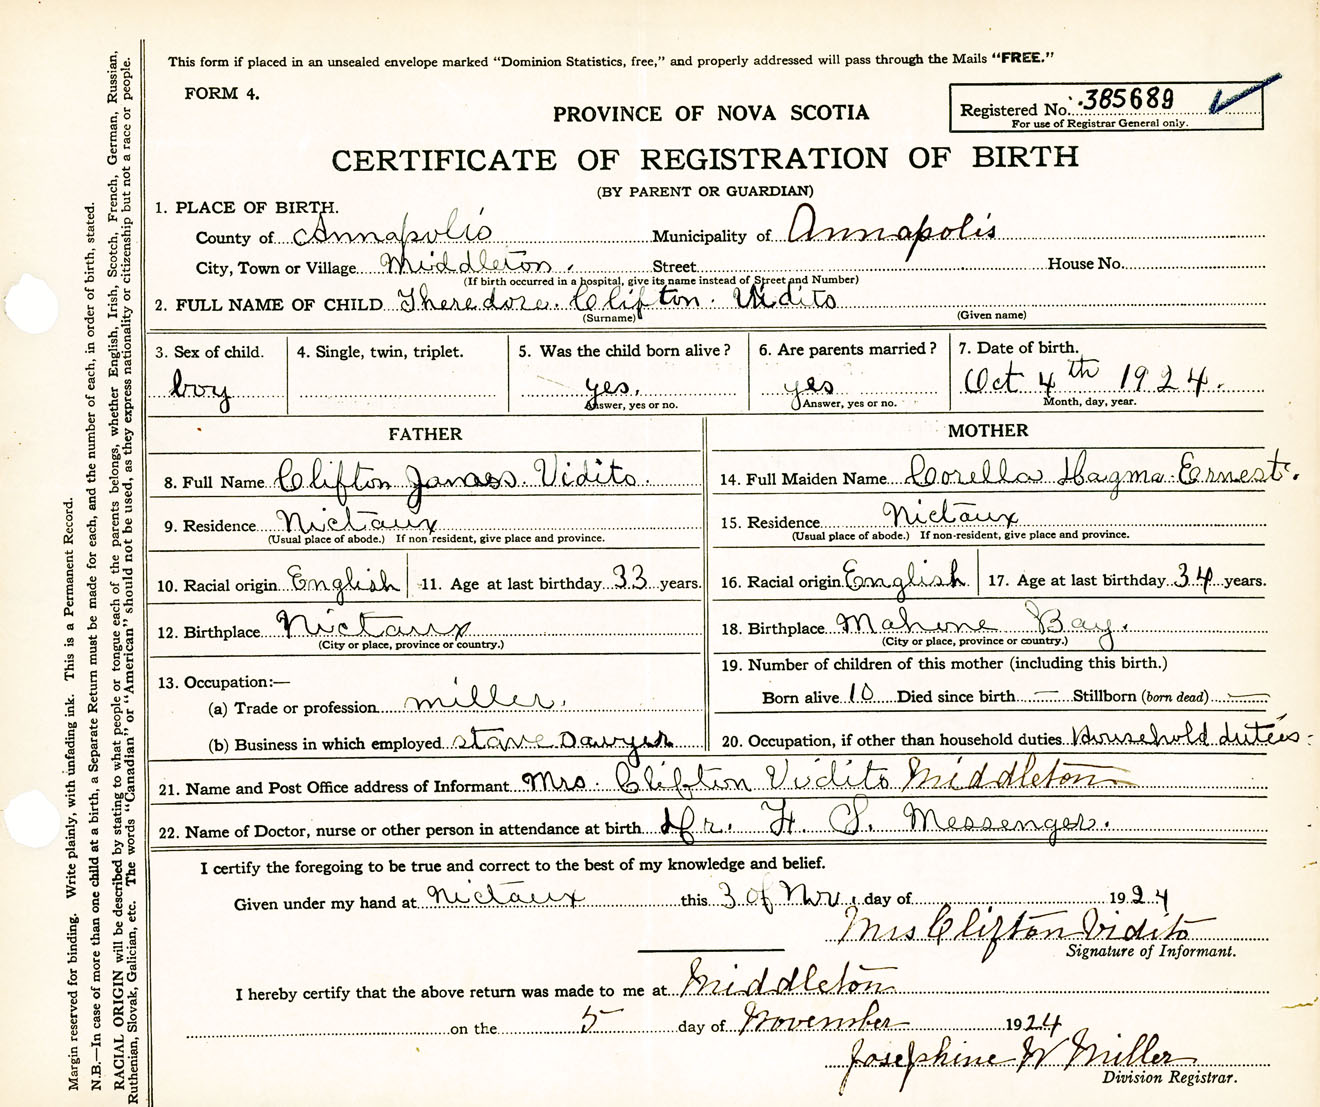 This form if placed in an unsealed envelope marked "Dominion Statistics, free," and properly addressed will pass through the Mails "FREE."
FORM 4.
PROVINCE OF NOVA SCOTIA
Registered No. 385689
For use of Registrar General only.
CERTIFICATE OF REGISTRATION OF BIRTH
(BY PARENT OR GUARDIAN)
1. PLACE OF BIRTH.
County of Annapolis Municipality of Annapolis
City, Town or Village Middleton. Street House No.
(If birth occurred in a hospital, give its name instead of Street and Number)
2. FULL NAME OF CHILD Theredore Clifton Vidito
(Surname) (Given name)
3. Sex of child. 4. Single, twin, triplet. 5. Was the child born alive? 6. Are parents married? 7. Date of birth.
boy yes. yes Oct 4th 1924.
Answer, yes or no. Answer, yes or no. Month, day, year.
FATHER MOTHER
8. Full Name Clifton James Vidito. 14. Full Maiden Name Corella Hagma Ernest.
9. Residence Nictaux 15. Residence Nictaux
(Usual place of abode.) If non-resident, give place and province. (Usual place of abode.) If non-resident, give place and province.
10. Racial origin English 11. Age at last birthday 33 years. 16. Racial origin English 17. Age at last birthday 34 years.
12. Birthplace Nictaux 18. Birthplace Mahone Bay.
(City or place, province or country.) (City or place, province or country.)
13. Occupation:— 19. Number of children of this mother (including this birth.)
(a) Trade or profession miller. Born alive 10 Died since birth — Stillborn (born dead) —
(b) Business in which employed stave Sawyer 20. Occupation, if other than household duties Household duties.
21. Name and Post Office address of Informant Mrs. Clifton Vidito Middleton
22. Name of Doctor, nurse or other person in attendance at birth Dr. F. S. Messenger.
I certify the foregoing to be true and correct to the best of my knowledge and belief.
Given under my hand at Nictaux this 3 of Nov. day of 1924
Mrs Clifton Vidito
Signature of Informant.
I hereby certify that the above return was made to me at Middleton
on the 5 day of November 1924
Josephine W Miller
Division Registrar.
Margin reserved for binding. Write plainly, with unfading ink. This is a Permanent Record.
N.B.—In case of more than one child at a birth, a Separate Return must be made for each, and the number of each, in order of birth, stated.
RACIAL ORIGIN will be described by stating to what people or tongue each of the parents belongs, whether English, Irish, Scotch, French, German, Russian,
Ruthenian, Slovak, Galician, etc. The words "Canadian" or "American" should not be used, as they express nationality or citizenship but not a race or people.